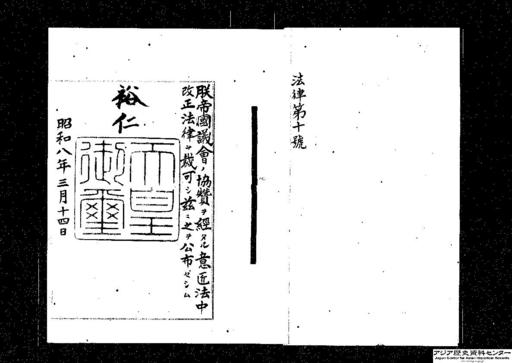 法律第十號
朕帝國議會ノ協贊ヲ經タル意匠法中
改正法律ヲ裁可シ茲ニ之ヲ公布セシム
裕仁
天皇
御璽
昭和八年三月十四日
アジア歴史資料センター
Japan Center for Asian Historical Records